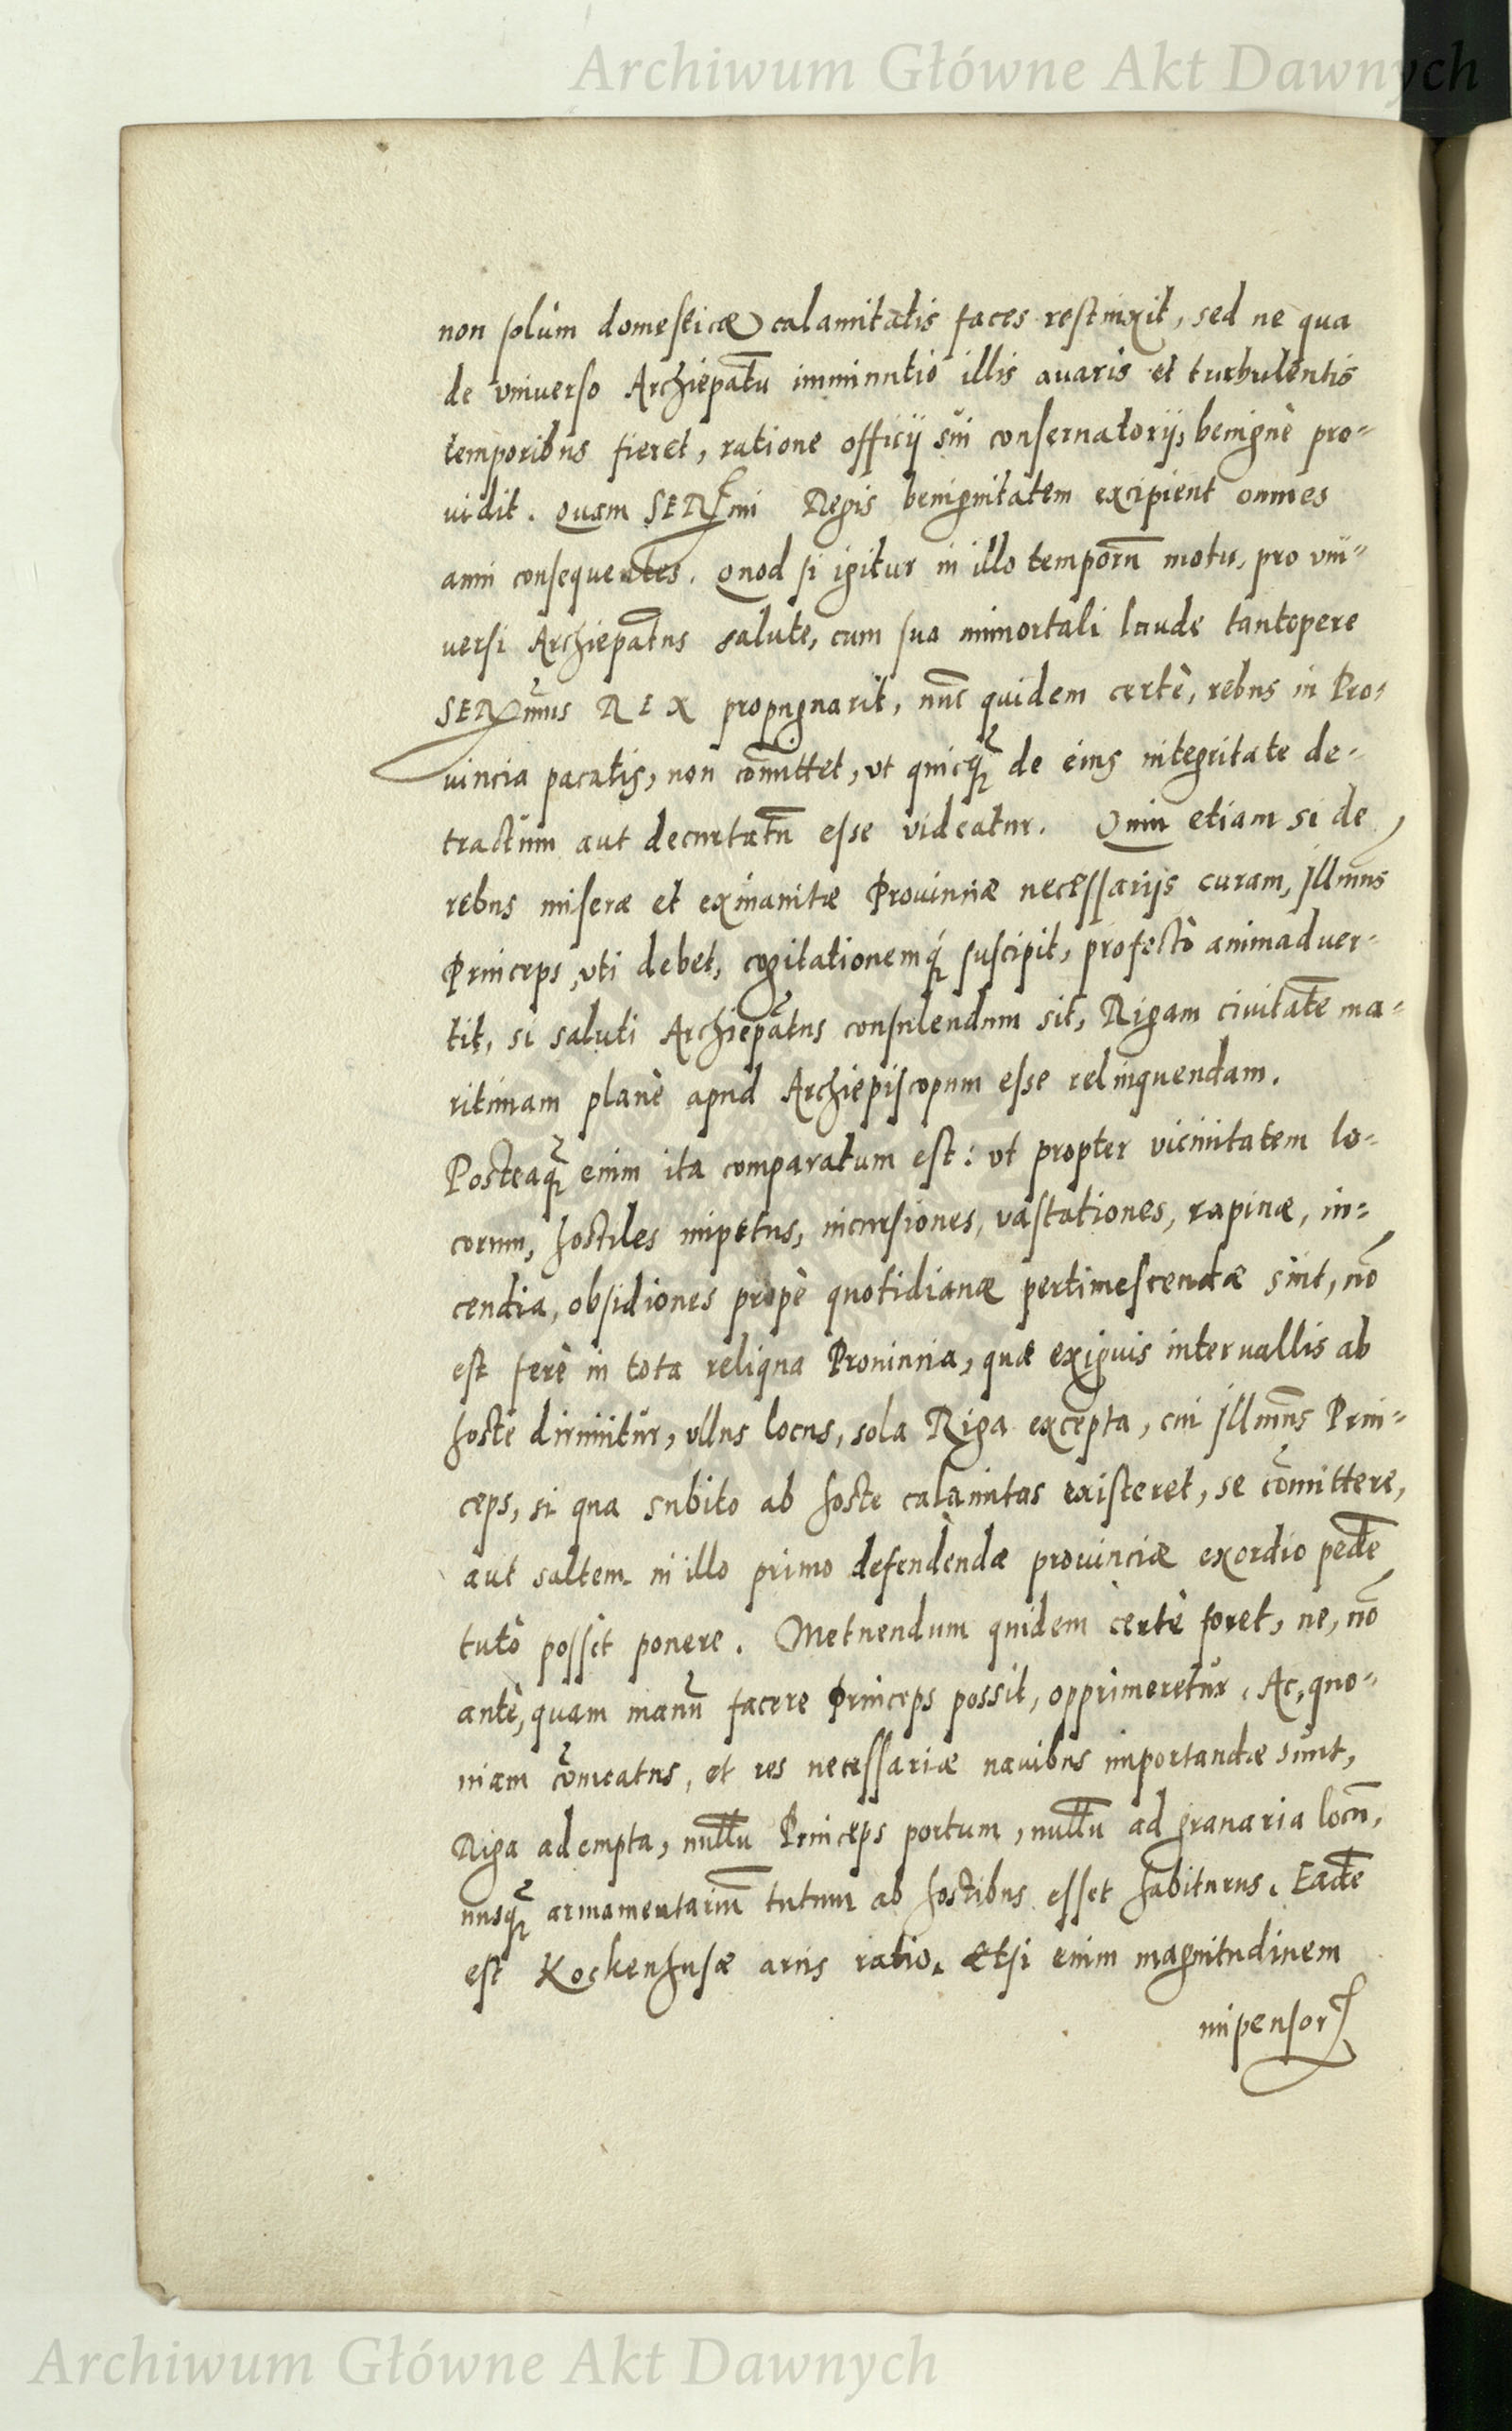 Archiwum Główne Akt Dawnych
non solùm domesticæ calamitatis faces restinxit, sed ne qua
de vniuerso Archiepatu imminutio illis auaris et turbulentis
temporibus fieret, ratione officij sui conseruatorij, benignè pro-
uidit. Quam SERmi Regis benignitatem excipient omnes
anni consequentes. Quod si igitur in illo temporũ motu, pro vni-
uersi Archiepatus salute, cum sua immortali laude tantopere
SERmus REX propugnarit, nũc quidem certè, rebus in Pro-
uincia pacatis, non cõmittet, vt quicq̃ de eius integritate de-
tractum aut decurtatũ esse videatur. Quin etiam si de
rebus miseræ et exinanitæ Prouinciæ necessarijs curam, Jllmus
Princeps, vti debet, cogitationemq́ suscipit, profectò animaduer-
tit, si saluti Archiepatus consulendum sit, Rigam ciuitatẽ ma-
ritimam planè apud Archiepiscopum esse relinquendam.
Posteaq̃ enim ita comparatum est: vt propter vicinitatem lo-
corum, hostiles impetus, incursiones, vastationes, rapinæ, in-
cendia, obsidiones propè quotidianæ pertimescendæ sint, nõ
est ferè in tota reliqua Prouincia, quæ exiguis interuallis ab
hoste dirimitur, vllus locus, sola Riga excepta, cui Jllmus Prin-
ceps, si qua subito ab hoste calamitas existeret, se cõmittere,
aut saltem in illo primo defendendæ prouinciæ exordio pedẽ
tutò posset ponere. Metuendum quidem certè foret, ne, nõ
antè, quam manũ facere Princeps possit, opprimeretur. Ac, quo-
niam cõmeatus, et res necessariæ nauibus importandæ sunt,
Riga adempta, nullũ Princeps portum, nullũ ad granaria locũ,
nusq̃ armamentariũ tutum ab hostibus esset habiturus. Eadẽ
est Kockenhusæ arcis ratio. Etsi enim magnitudinem
impensor
Archiwum Główne Akt Dawnych